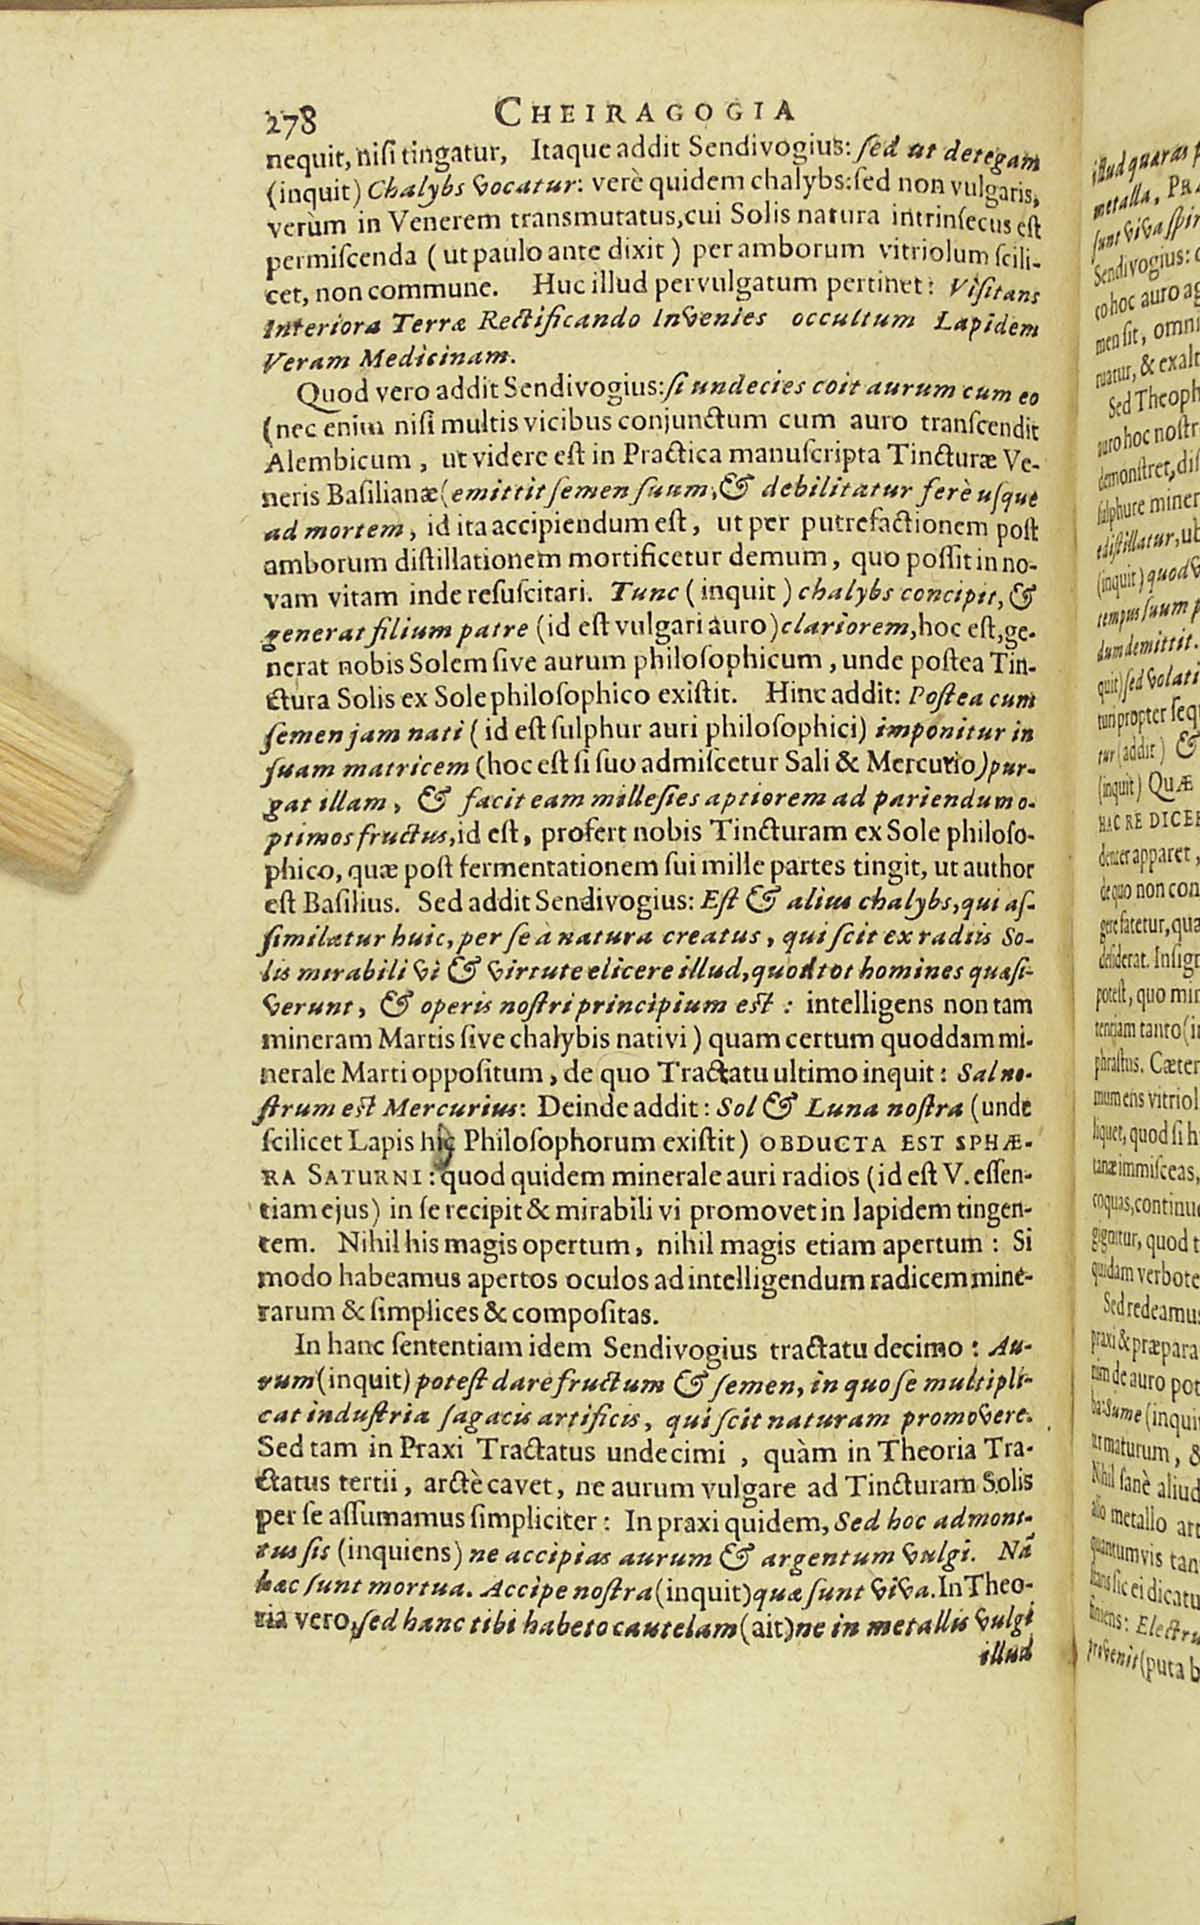 278 CHEIRAGOGIA
nequit, niſi tingatur, Itaque addit Sendivogius: ſed ut detegam
(inquit) Chalybs vocatur: verè quidem chalybs: ſed non vulgaris,
verùm in Venerem transmutatus, cui Solis natura intrinſecus eſt
permiſcenda ( ut paulo ante dixit ) per amborum vitriolum ſcili-
cet, non commune. Huc illud pervulgatum pertinet: Viſitans
Interiora Terræ Rectificando Invenies occultum Lapidem
Veram Medicinam.
Quod vero addit Sendivogius: ſi undecies coit aurum cum eo
(nec enim niſi multis vicibus conjunctum cum auro tranſcendit
Alembicum, ut videre eſt in Practica manuſcripta Tincturæ Ve-
neris Baſilianæ (emittit ſemen ſuum, & debilitatur ferè uſque
ad mortem, id ita accipiendum eſt, ut per putrefactionem poſt
amborum diſtillationem mortificetur demum, quo poſſit in no-
vam vitam inde reſuſcitari. Tunc (inquit) chalybs concipit, &
generat filium patre (id eſt vulgari auro) clariorem, hoc eſt, ge-
nerat nobis Solem ſive aurum philoſophicum, unde poſtea Tin-
ctura Solis ex Sole philoſophico exiſtit. Hinc addit: Poſtea cum
ſemen jam nati (id eſt ſulphur auri philoſophici) imponitur in
ſuam matricem (hoc eſt ſi ſuo admiſcetur Sali & Mercurio) pur-
gat illam, & facit eam milleſies aptiorem ad pariendum o-
ptimos fructus, id eſt, profert nobis Tincturam ex Sole philoſo-
phico, quæ poſt fermentationem ſui mille partes tingit, ut author
eſt Baſilius. Sed addit Sendivogius: Eſt & alius chalybs, qui aſ-
ſimilatur huic, per ſe à natura creatus, qui ſcit ex radiis So-
lis mirabili vi & virtute elicere illud, quod tot homines quæſi-
verunt, & operis noſtri principium est: intelligens non tam
mineram Martis ſive chalybis nativi) quam certum quoddam mi-
nerale Marti oppoſitum, de quo Tractatu ultimo inquit: Sal no-
ſtrum est Mercurius: Deinde addit: Sol & Luna noſtra (unde
ſcilicet Lapis hic Philoſophorum exiſtit) OBDUCTA EST SPHÆ-
RA SATURNI: quod quidem minerale auri radios (id eſt V. eſſen-
tiam ejus) in ſe recipit & mirabili vi promovet in lapidem tingen-
tem. Nihil his magis opertum, nihil magis etiam apertum: Si
modo habeamus apertos oculos ad intelligendum radicem mine-
rarum & ſimplices & compoſitas.
In hanc ſententiam idem Sendivogius tractatu decimo: Au-
rum (inquit) poteſt dare fructum & ſemen, in quo ſe multipli-
cat induſtria ſagacis artificis, qui ſcit naturam promovere.
Sed tam in Praxi Tractatus undecimi, quàm in Theoria Tra-
ctatus tertii, arctè cavet, ne aurum vulgare ad Tincturam Solis
per ſe aſſumamus ſimpliciter: In praxi quidem, Sed hoc admoni-
tus ſis (inquiens) ne accipias aurum & argentum vulgi. Nã
hæc ſunt mortua. Accipe noſtra (inquit) quæ ſunt viva. In Theo-
ria vero, ſed hanc tibi habeto cautelam (ait) ne in metallis vulgi
illud